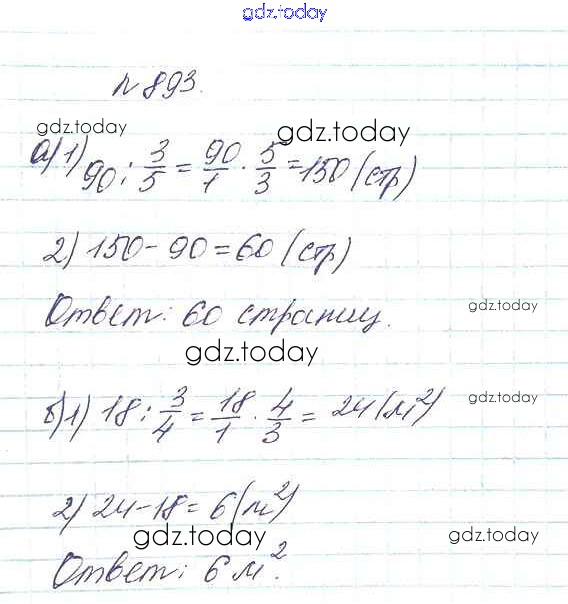 gdz.today
№893.
gdz.today gdz.today
а) 1) 90 : 3/5 = 90/1 · 5/3 = 150 (стр)
2) 150 - 90 = 60 (стр)
Ответ: 60 страниц.
gdz.today
gdz.today
gdz.today
б) 1) 18 : 3/4 = 18/1 · 4/3 = 24 (м²)
2) 24 - 18 = 6 (м²)
gdz.today gdz.today
Ответ: 6 м².